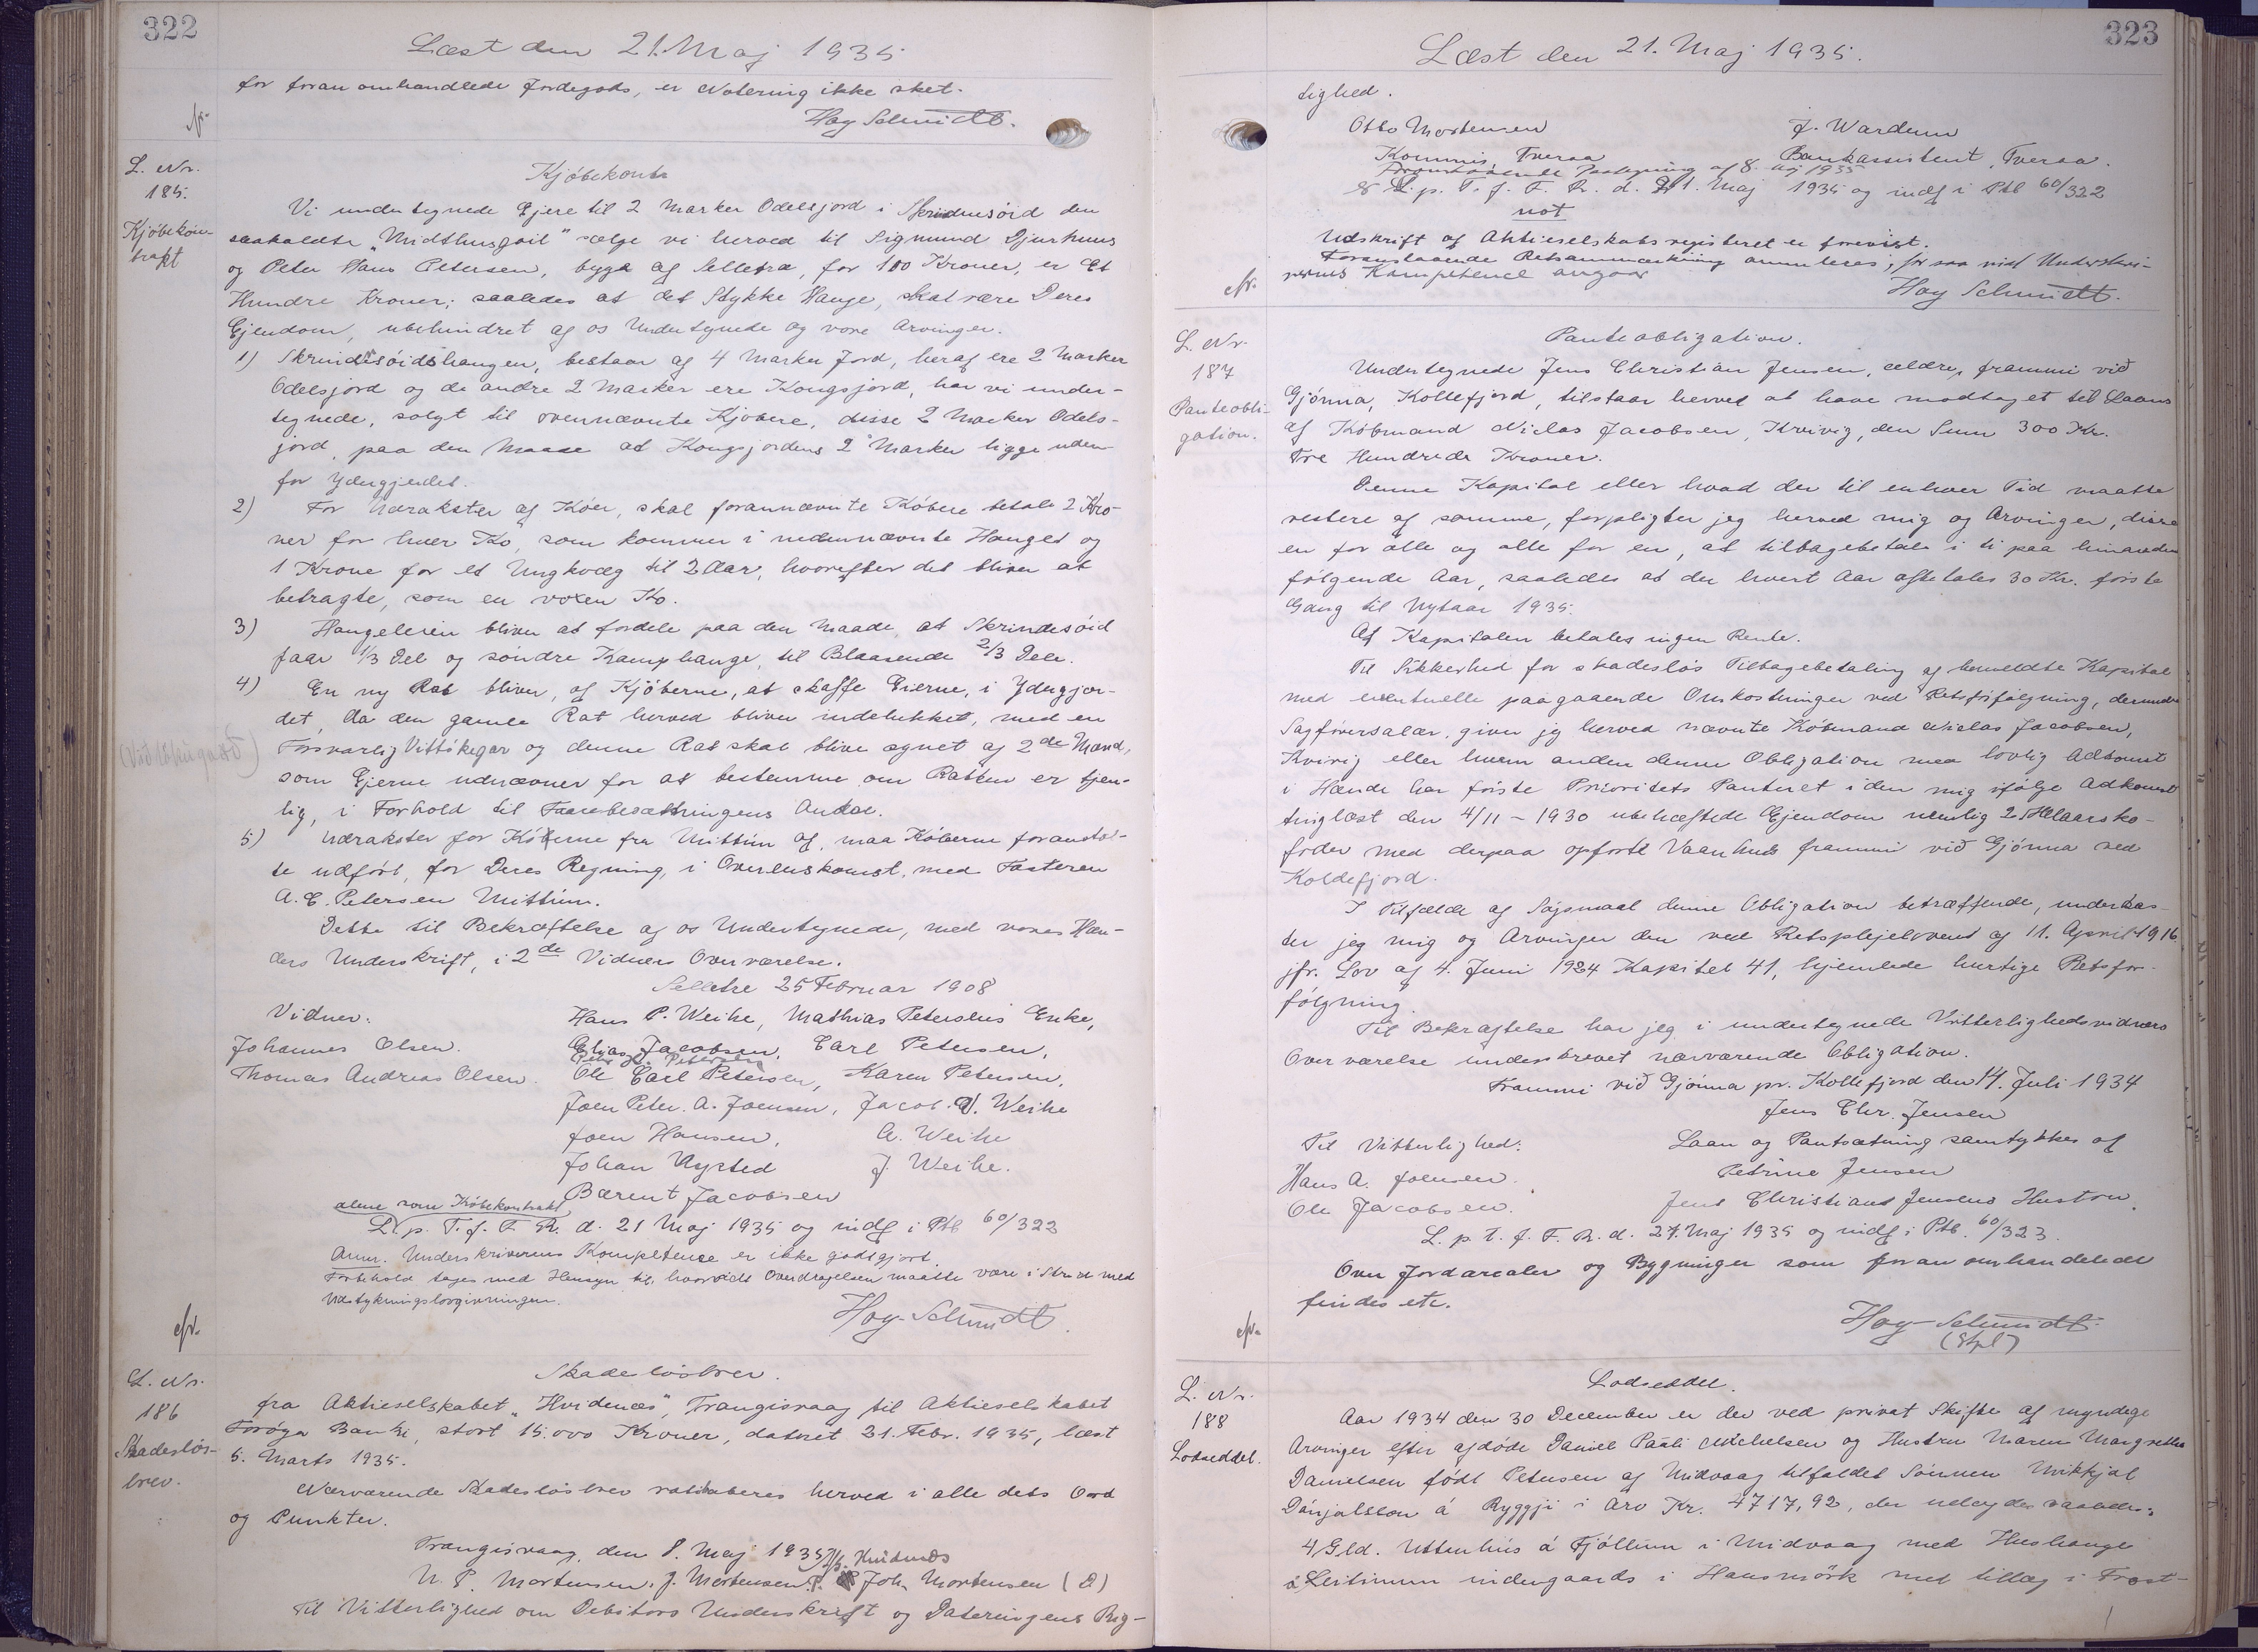 322
Læst den 21. Maj 1935
for foran omhandlede Jordegods, er Notering ikke sket.
Hay Schmidt.
L. Nr.
185.
Kjöbekon-
trakt
Kjöbekontr
Vi undertegnede Ejere til 2 Marker Odelsjord i Skrindusöid den
saakaldte "Midthusgail" sælge vi herved til Sigmund Djurhuus
og Peter Hans Petersen, bygd af Selletræ, for 100 Kroner, er Et
Hundre Kroner; saaledes at det Stykke Hauge, skal være Deres
Ejendom, ubehindret af os Undertegnede og vore Arvinger.
1) Skrindisöidshaugen, bestaar af 4 Marker Jord, heraf ere 2 Marker
Odelsjord og de andre 2 Marker ere Kongsjord, har vi under-
tegnede, solgt til ovennævnte Kjöbere, disse 2 Marker Odels-
jord, paa den Maade at Kongsjordens 2 Marker ligge uden
for Ydergjerdet.
2) For Udrakster af Köer, skal forannævnte Köbere betale 2 Kro-
ner for hver Ko, som kommer i nedennævnte Hauget og
1 Krone for et Ungkvæg til 2 Aar, hvorefter det bliver at
betragte, som en voxen Ko.
3) Haugeleien bliver at fordele paa den Maade, at Skrindesöid
faar 1/3 Del og söndre Kamphauge, til Blaasende 2/3 Dele.
4) En ny Rat bliver, af Kjöberne, at skaffe Eierne, i Ydergjær-
det, da den gamle Rat herved bliver indelukket, med en
Forsvarlig Vittikegar og denne Rat skal blive egnet af 2de Mænd,
som Ejerne udnævner for at bestemme om Ratten er tjen-
lig, i Forhold til Faarebesætningens Antal.
5) Udrakster for Köberne fra Mittún af, maa Köberne foranstal-
te udfört, for Deres Regning, i Overenskomst, med Fasteren
A. C. Petersen Mittúm.
Dette til Bekræftelse af os Undertegnede, med vores Hæn-
ders Underskrift, i 2de Vidners Overværelse.
Selletræ 25 Februar 1908
Vidner.
Hans P. Weihe, Mathias Petersens Enke,
Johannes Olsen.
Elias Jacobsen, Carl Petersen,
Thomas Andreas Olsen.
Ole Carl Petersen, Karen Petersen,
Joen Peter. A. Joensen, Jacob. V. Weihe
Joen Hansen, A. Weihe
Johan Nysted J. Weihe.
Bærent Jacobsen
alene som Köbekontrakt
L. p. T. f. F. R. d. 21 Maj 1935 og indf i Ptb 60/322
Anm. Underskrivernes Kompetence er ikke godtgjort.
Forbehold tages med Hensyn til, hvorvidt Overdragelsen maatte være i Strid med
Udstykningslovgivningen.
Hay-Schmidt.
L. Nr.
186
Skadeslös-
brev.
Skadeslösbrev.
fra Aktieselskabet "Hvidenæs", Trangisvaag til Aktieselskabet
Færöya Banki, stort 15.000 Kroner, dateret 21. Febr. 1935, læst
5. Marts 1935.
Nærværende Skadeslösbrev ratihaberes herved i alle dets Ord
og Punkter.
Trangisvaag, den 8. Maj 1935
N. P. Mortensen. J. Mortensen. P. Joh. Mortensen
Til Vitterlighed om Debitors Underskrift og Dateringens Rig-
323
Læst den 21. Maj 1935.
tighed.
Otto Mortensen J. Wardum
Kommis, Tveraa Bankassistent, Tveraa.
Foranstaaende Paategning af 8. Maj 1935
er L. p. T. f. F. R. d. 21. Maj 1935 og indf i Ptb 60/322
not
Udskrift af Aktieselskabsregisteret er forevist.
Foranstaaende Retsanmærkning annulleres, for saa vidt Underskri-
vernes Kompetence angaar
Hay Schmidt.
L. Nr.
187
Panteobli-
gation.
Panteobligation.
Undertegnede Jens Christian Jensen, ældre, frammi við
Gjónna, Kollefjord, tilstaar herved at have modtaget til Laans
af Köbmand Niclas Jacobsen, Kvivig, den Sum 300 Kr.
Tre Hundrede Kroner.
Denne Kapital eller hvad der til enhver Tid maatte
restere af samme, forpligter jeg herved mig og Arvinger, disse
en for alle og alle for en, at tilbagebetale i ti paa hinanden
fölgende Aar, saaledes at der hvert Aar afbetales 30 Kr. förste
Gang til Nytaar 1935.
Af Kapitalen betales ingen Rente.
Til Sikkerhed for skadeslös Tilbagebetaling af bemeldte Kapital
med eventuelle paagaaende Omkostninger ved Retsforfölgning, derunder
Sagförersalær, giver jeg herved nævnte Köbmand Niclas Jacobsen,
Kvivig eller hvem anden denne Obligation med lovlig Adkomst
i Hænde har förste Prioritets Panteret i den mig ifölge Adkomst
tinglæst den 4/11 - 1930 ubehæftede Ejendom nemlig 2 Helaarsko-
foder med derpaa opförte Vaaningshus frammi við Gjónna ved
Koldefjord.
I Tilfælde af Sögsmaal denne Obligation betræffende, underkas-
ter jeg mig og Arvinger den ved Retsplejelovens af 11. April 1916
jfr. Lov af 4. Juni 1924 Kapitel 41, hjemlede hurtige Retsfor-
fölgning.
Til Bekræftelse har jeg i undertegnede Vitterlighedsvidners
Overværelse underskrevet nærværende Obligation.
Frammi við Gjónna pr. Kollefjord den 14. Juli 1934
Jens Chr. Jensen
Til Vitterlighed: Laan og Pantsætning samtykkes af
Hans A. Joensen. Petrine Jensen
Ole Jacobsen. Jens Christians Jensens Hustru.
L. p. T. f. F. R. d. 21. Maj 1935 og indf i Ptb. 60/323.
Over Jordarealer og Bygninger som foran omhandelede
findes etc.
Hay-Schmidt.
(Stpl)
L. Nr.
188
Lodseddel.
Lodseddel.
Aar 1934 den 30 December er der ved privat Skifte af myndige
Arvinger efter afdöde Daniel Pauli Michelsen og Hustru Maren Margrethe
Danielsen födt Petersen af Midvaag tilfaldet Sönnen Mikkjal
Dánjalsson á Ryggji i Arv Kr. 4717,92, der udlagdes saaledes:
4 Gld. Uttanhús á Fjöllum i Midvaag med Hushauge
á Leitinum indengaards i Hansmörk med tillæg i Trost-